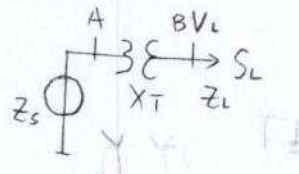 A
B V_L
S_L
Z_S
X_T
Z_L